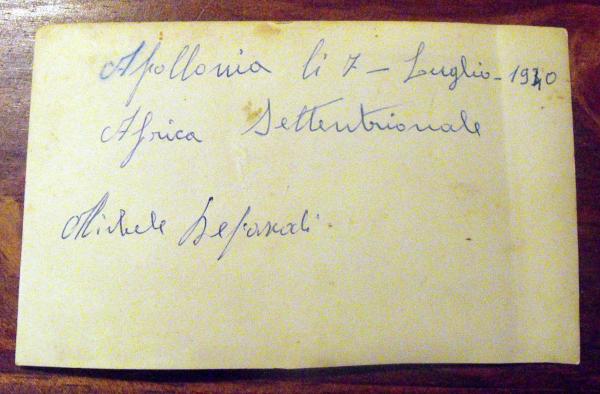 Apollonia li 7 - Luglio - 1940
Africa Settentrionale
Michele